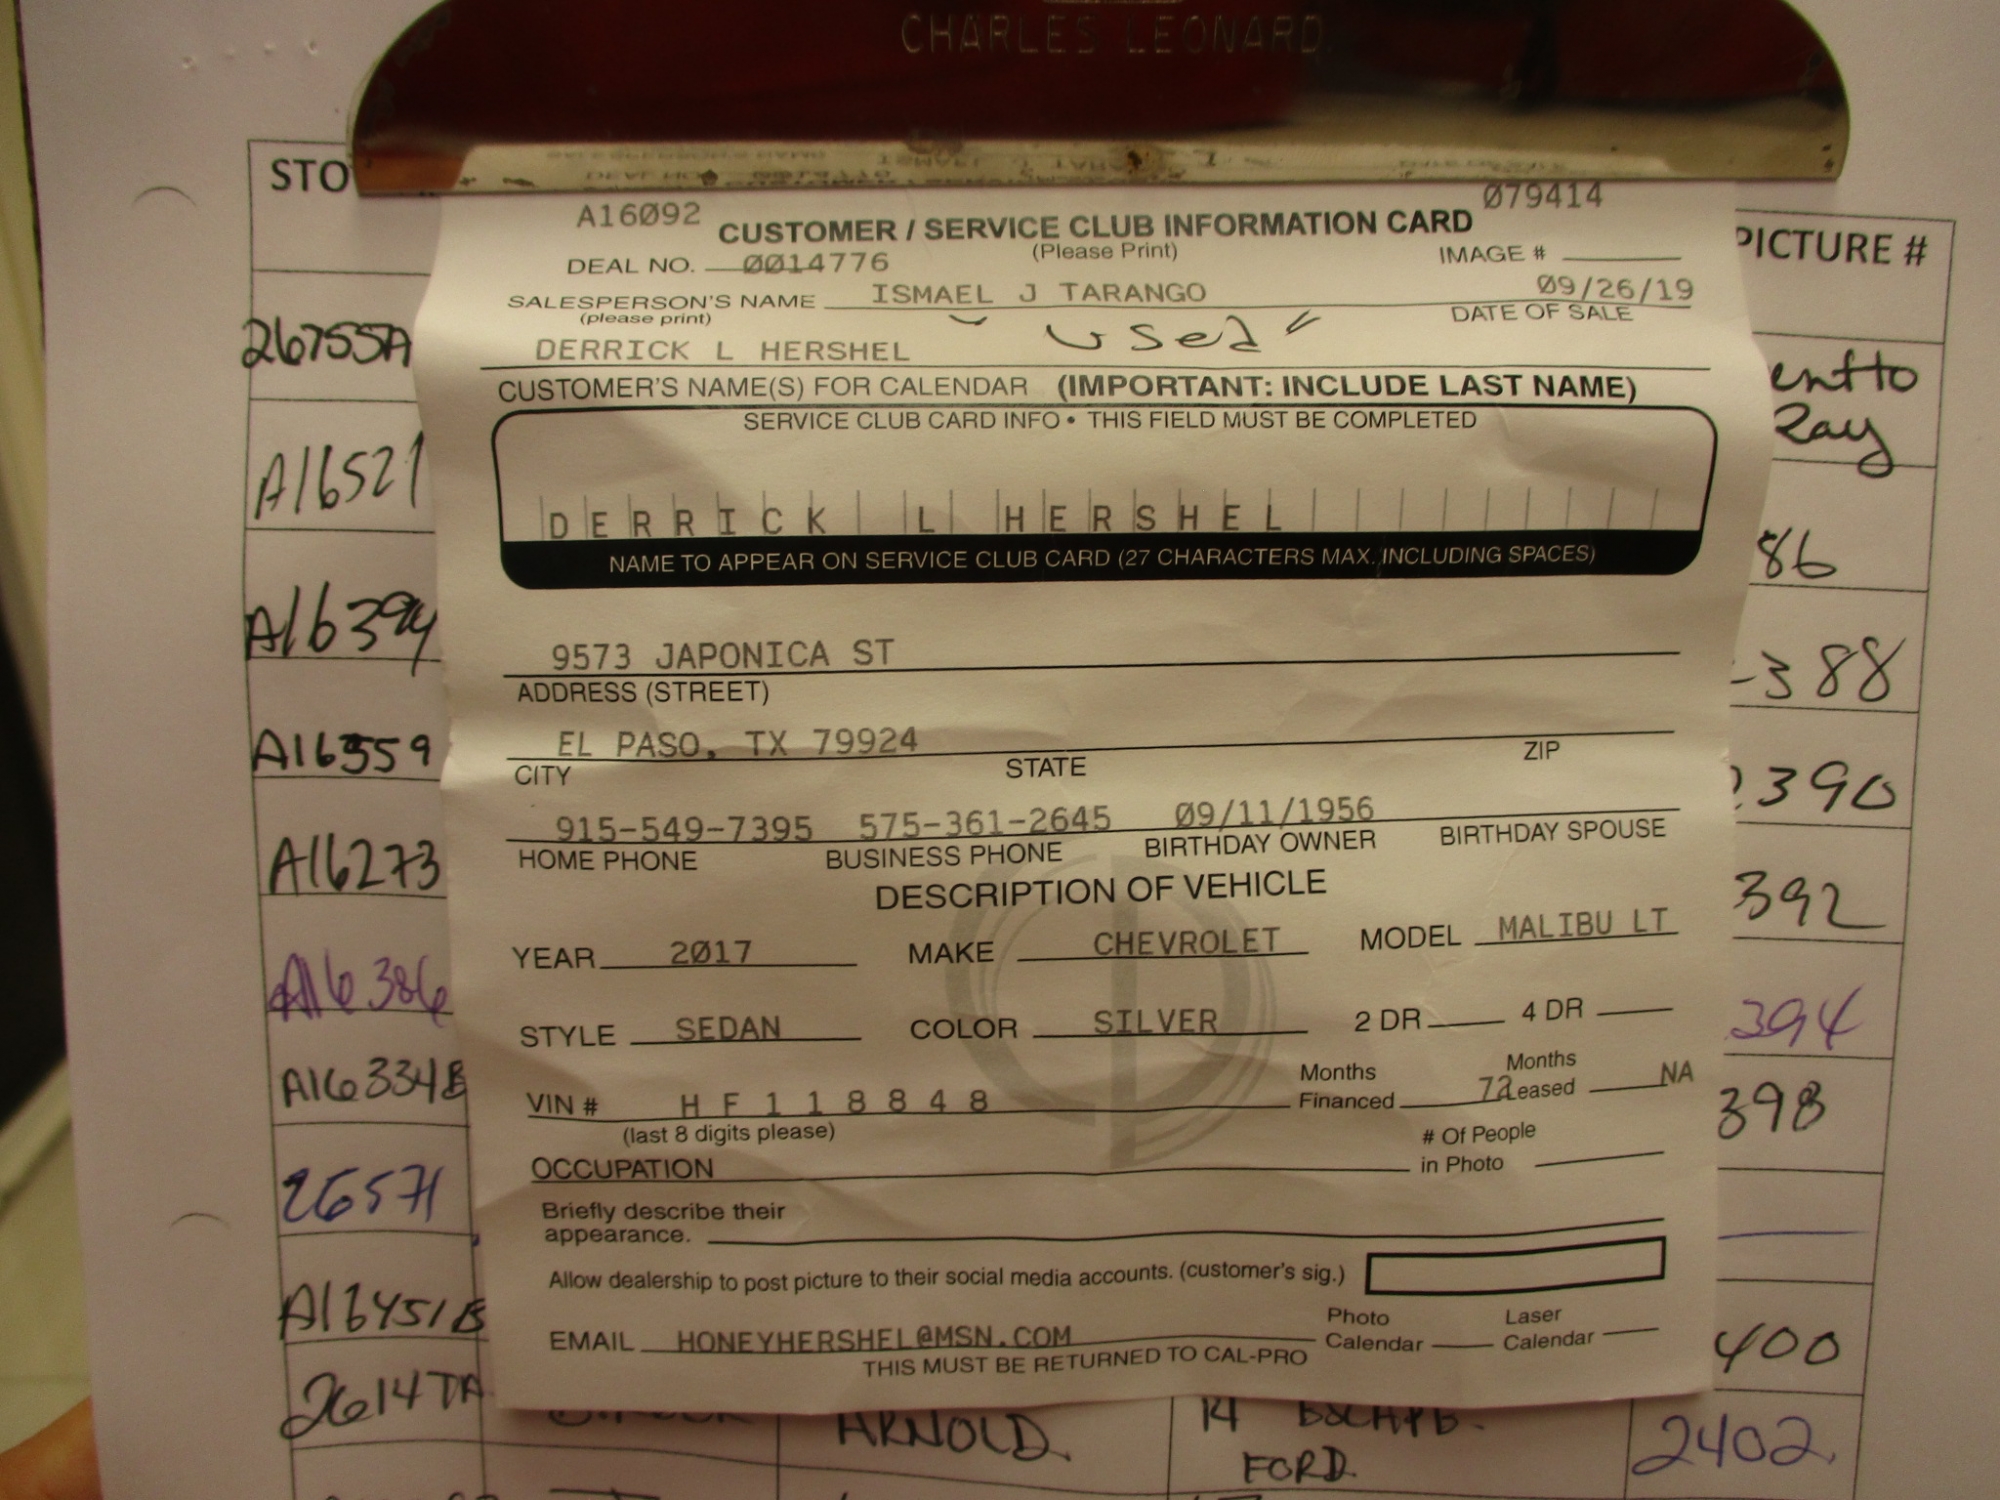 CHARLES LEONARD
STO
PICTURE #
A16092
079414
CUSTOMER / SERVICE CLUB INFORMATION CARD
(Please Print)
DEAL NO. 0014776
IMAGE #
SALESPERSON'S NAME ISMAEL J TARANGO 09/26/19
(please print)
DATE OF SALE
used
DERRICK L HERSHEL
CUSTOMER'S NAME(S) FOR CALENDAR (IMPORTANT: INCLUDE LAST NAME)
SERVICE CLUB CARD INFO • THIS FIELD MUST BE COMPLETED
DERRICK L HERSHEL
NAME TO APPEAR ON SERVICE CLUB CARD (27 CHARACTERS MAX. INCLUDING SPACES)
9573 JAPONICA ST
ADDRESS (STREET)
EL PASO, TX 79924
CITY STATE ZIP
915-549-7395 575-361-2645 09/11/1956
HOME PHONE BUSINESS PHONE BIRTHDAY OWNER BIRTHDAY SPOUSE
DESCRIPTION OF VEHICLE
YEAR 2017 MAKE CHEVROLET MODEL MALIBU LT
STYLE SEDAN COLOR SILVER 2 DR 4 DR
VIN # HF118848 Months Financed 72 Months Leased NA
(last 8 digits please)
OCCUPATION # Of People in Photo
Briefly describe their
appearance.
Allow dealership to post picture to their social media accounts. (customer's sig.)
EMAIL HONEYHERSHEL@MSN.COM Photo Calendar Laser Calendar
THIS MUST BE RETURNED TO CAL-PRO
26755A
A16521
A16394
A16559
A16273
A16386
A16334B
26571
A16451B
ent to
Ray
86
388
390
392
394
398
400
ARNOLD.
14 ESCAPE.
FORD.
2402